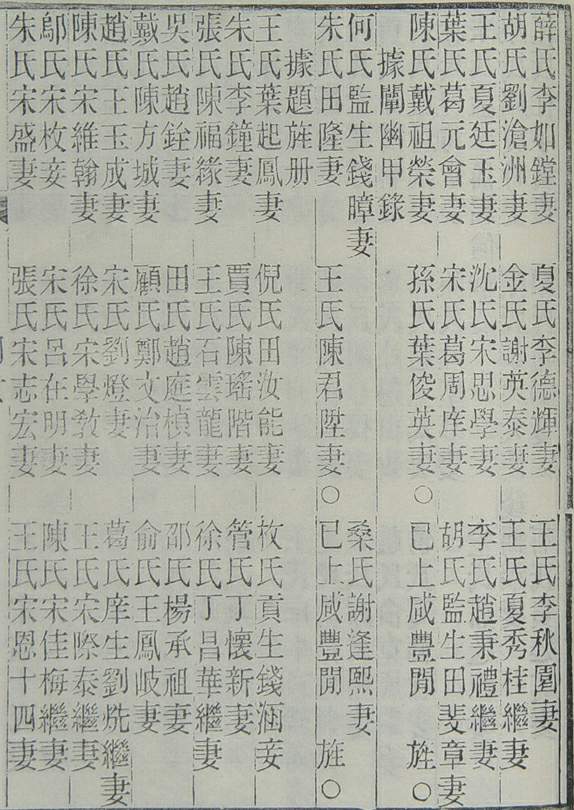 薛氏李如鏜妻 夏氏李德輝妻 王氏李秋園妻
胡氏劉滄洲妻 金氏謝英泰妻 王氏夏秀桂繼妻
王氏夏廷玉妻 沈氏宋思學妻 李氏趙秉禮繼妻
葉氏葛元會妻 宋氏葛周庠妻 胡氏監生田斐章妻
陳氏戴祖榮妻 孫氏葉俊英妻○ 已上咸豐閒 旌○
據闡幽甲錄
何氏監生錢暲妻 桑氏謝逢熙妻
朱氏田隆妻 王氏陳君陞妻○ 已上咸豐閒 旌○
據題旌册
王氏葉起鳳妻 倪氏田汝能妻 枚氏貢生錢涵妾
朱氏李鐘妻 賈氏陳瑤階妻 管氏丁懷新妻
張氏陳福緣妻 王氏石雲龍妻 徐氏丁昌華繼妻
吳氏趙銓妻 田氏趙庭楨妻 邵氏楊承祖妻
戴氏陳方城妻 顧氏鄭文治妻 俞氏王鳳岐妻
趙氏王玉成妻 宋氏劉燈妻 葛氏庠生劉烑繼妻
陳氏宋維翰妻 徐氏宋學敎妻 王氏宋際泰繼妻
鄔氏宋枚妾 宋氏呂在明妻 陳氏宋佳梅繼妻
朱氏宋盛妻 張氏宋志宏妻 王氏宋恩十四妻